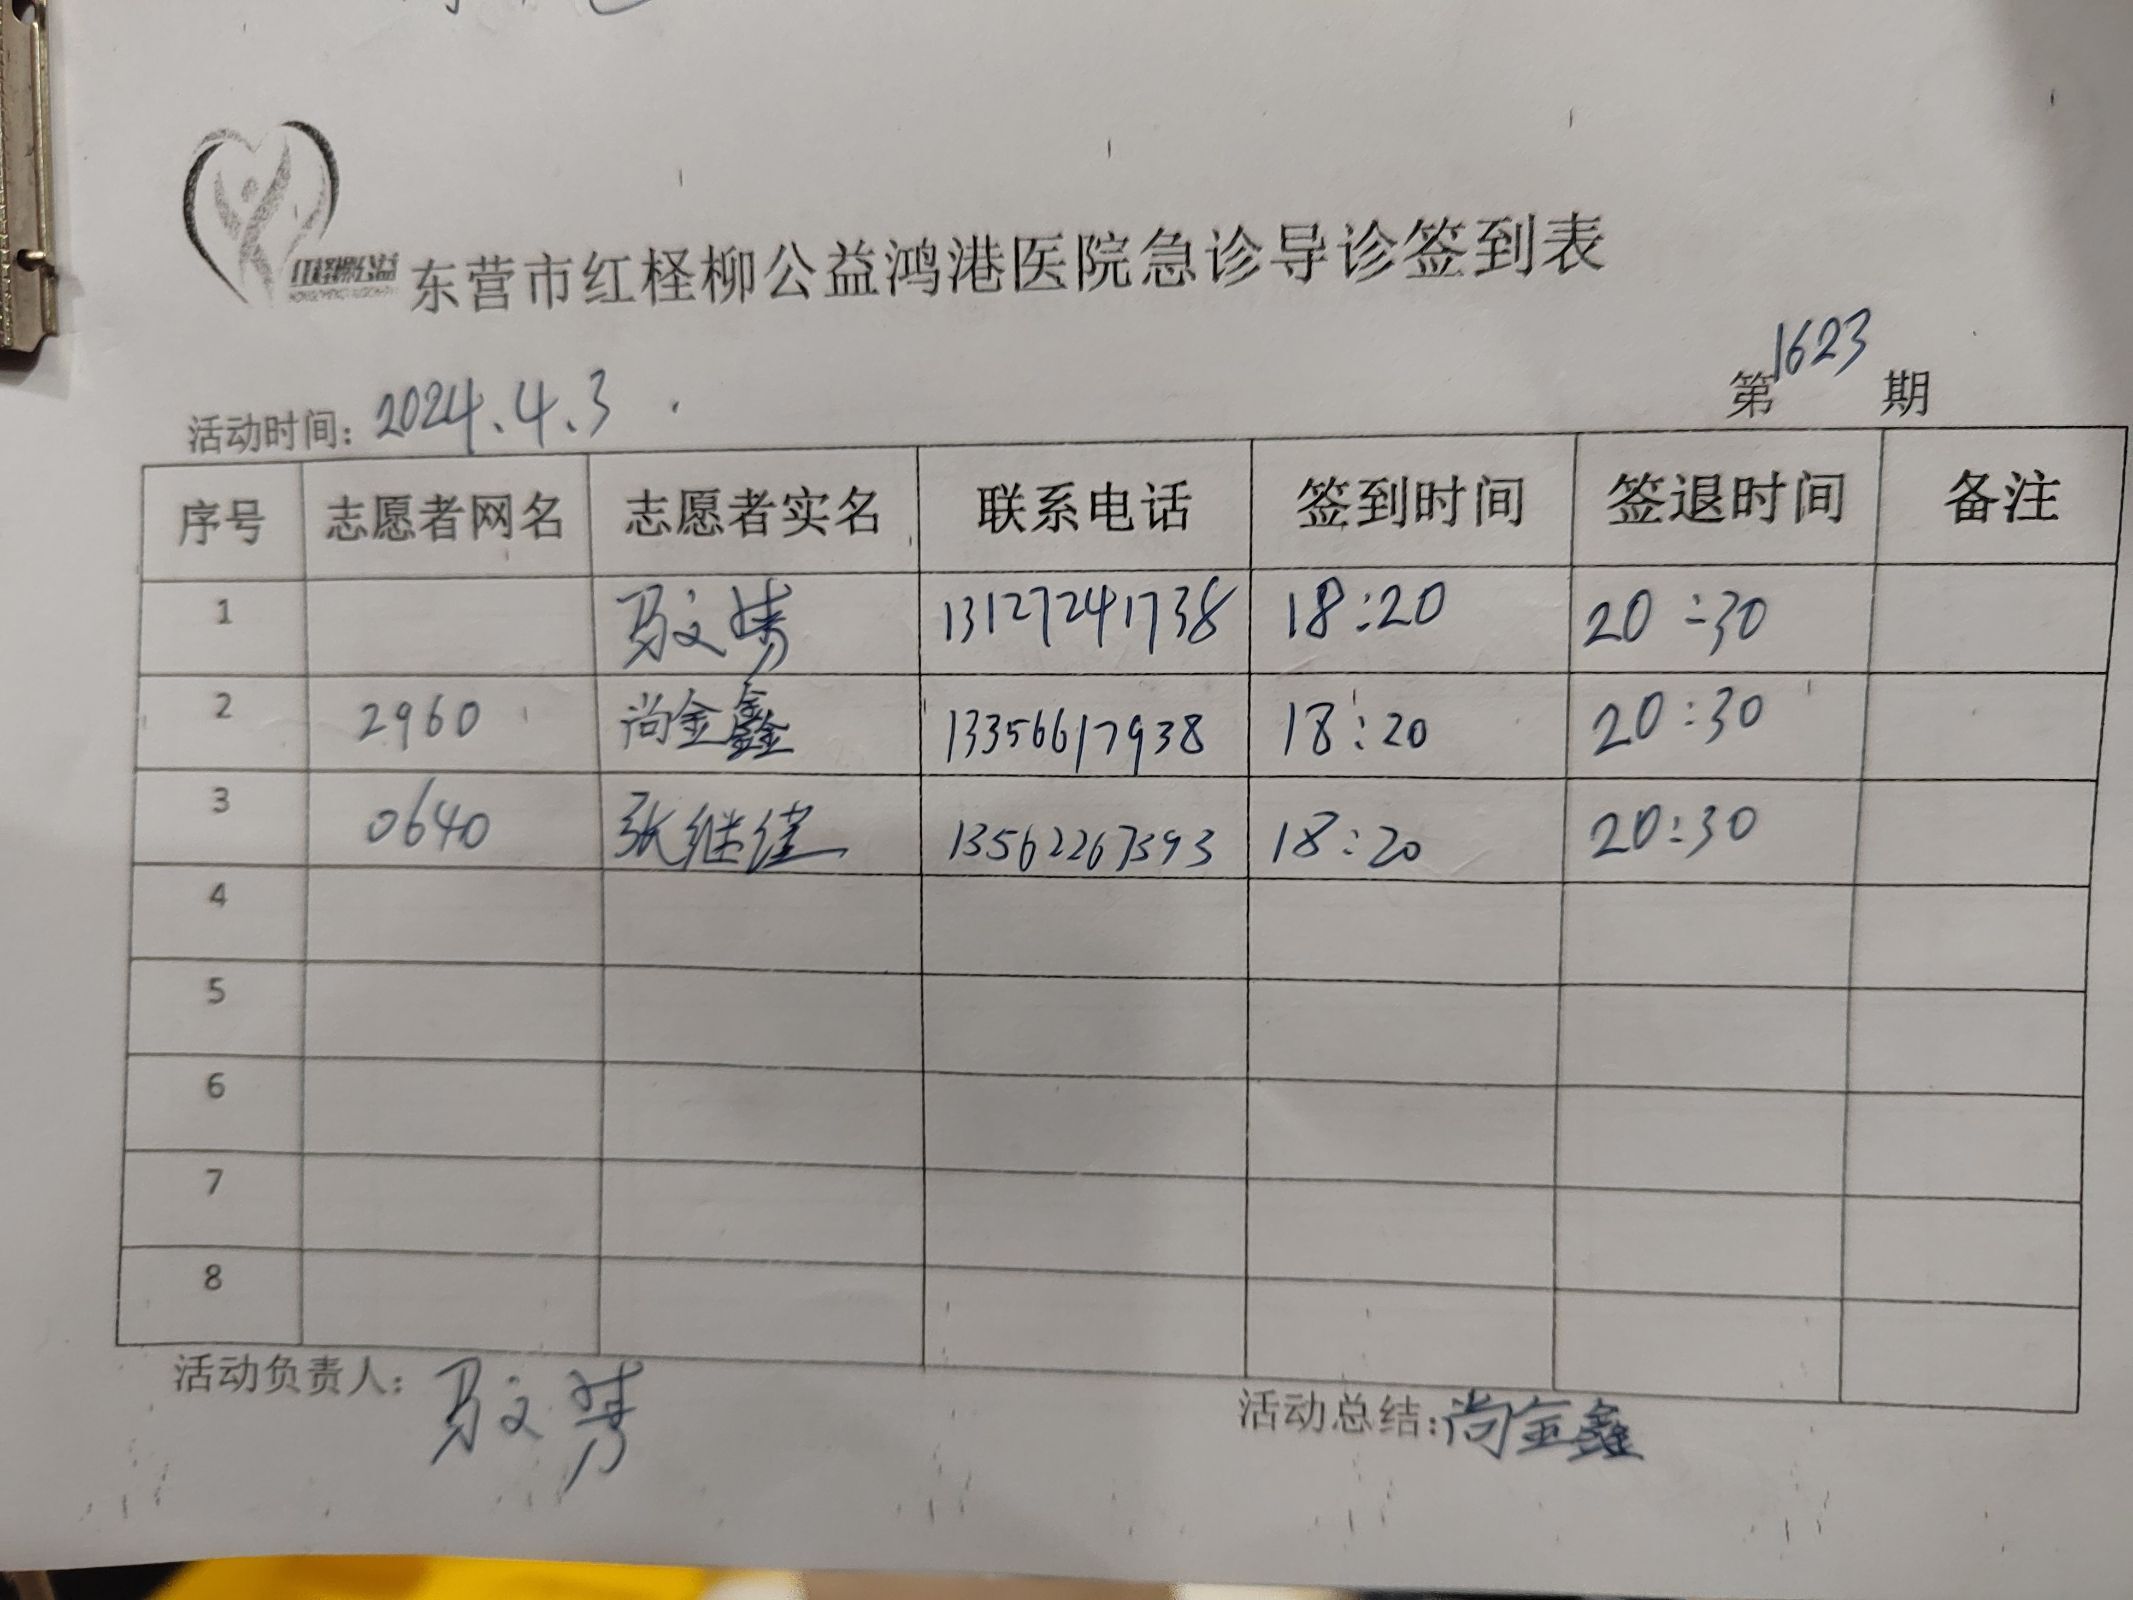 东营市红柽柳公益鸿港医院急诊导诊签到表
第1623期
活动时间:2024.4.3
序号 志愿者网名 志愿者实名 联系电话 签到时间 签退时间 备注
1 马文 13127241738 18:20 20:30
2 2960 尚金鑫 13356617938 18:20 20:30
3 0640 张继 13562267393 18:20 20:30
4
5
6
7
8
活动负责人:马文
活动总结:尚金鑫